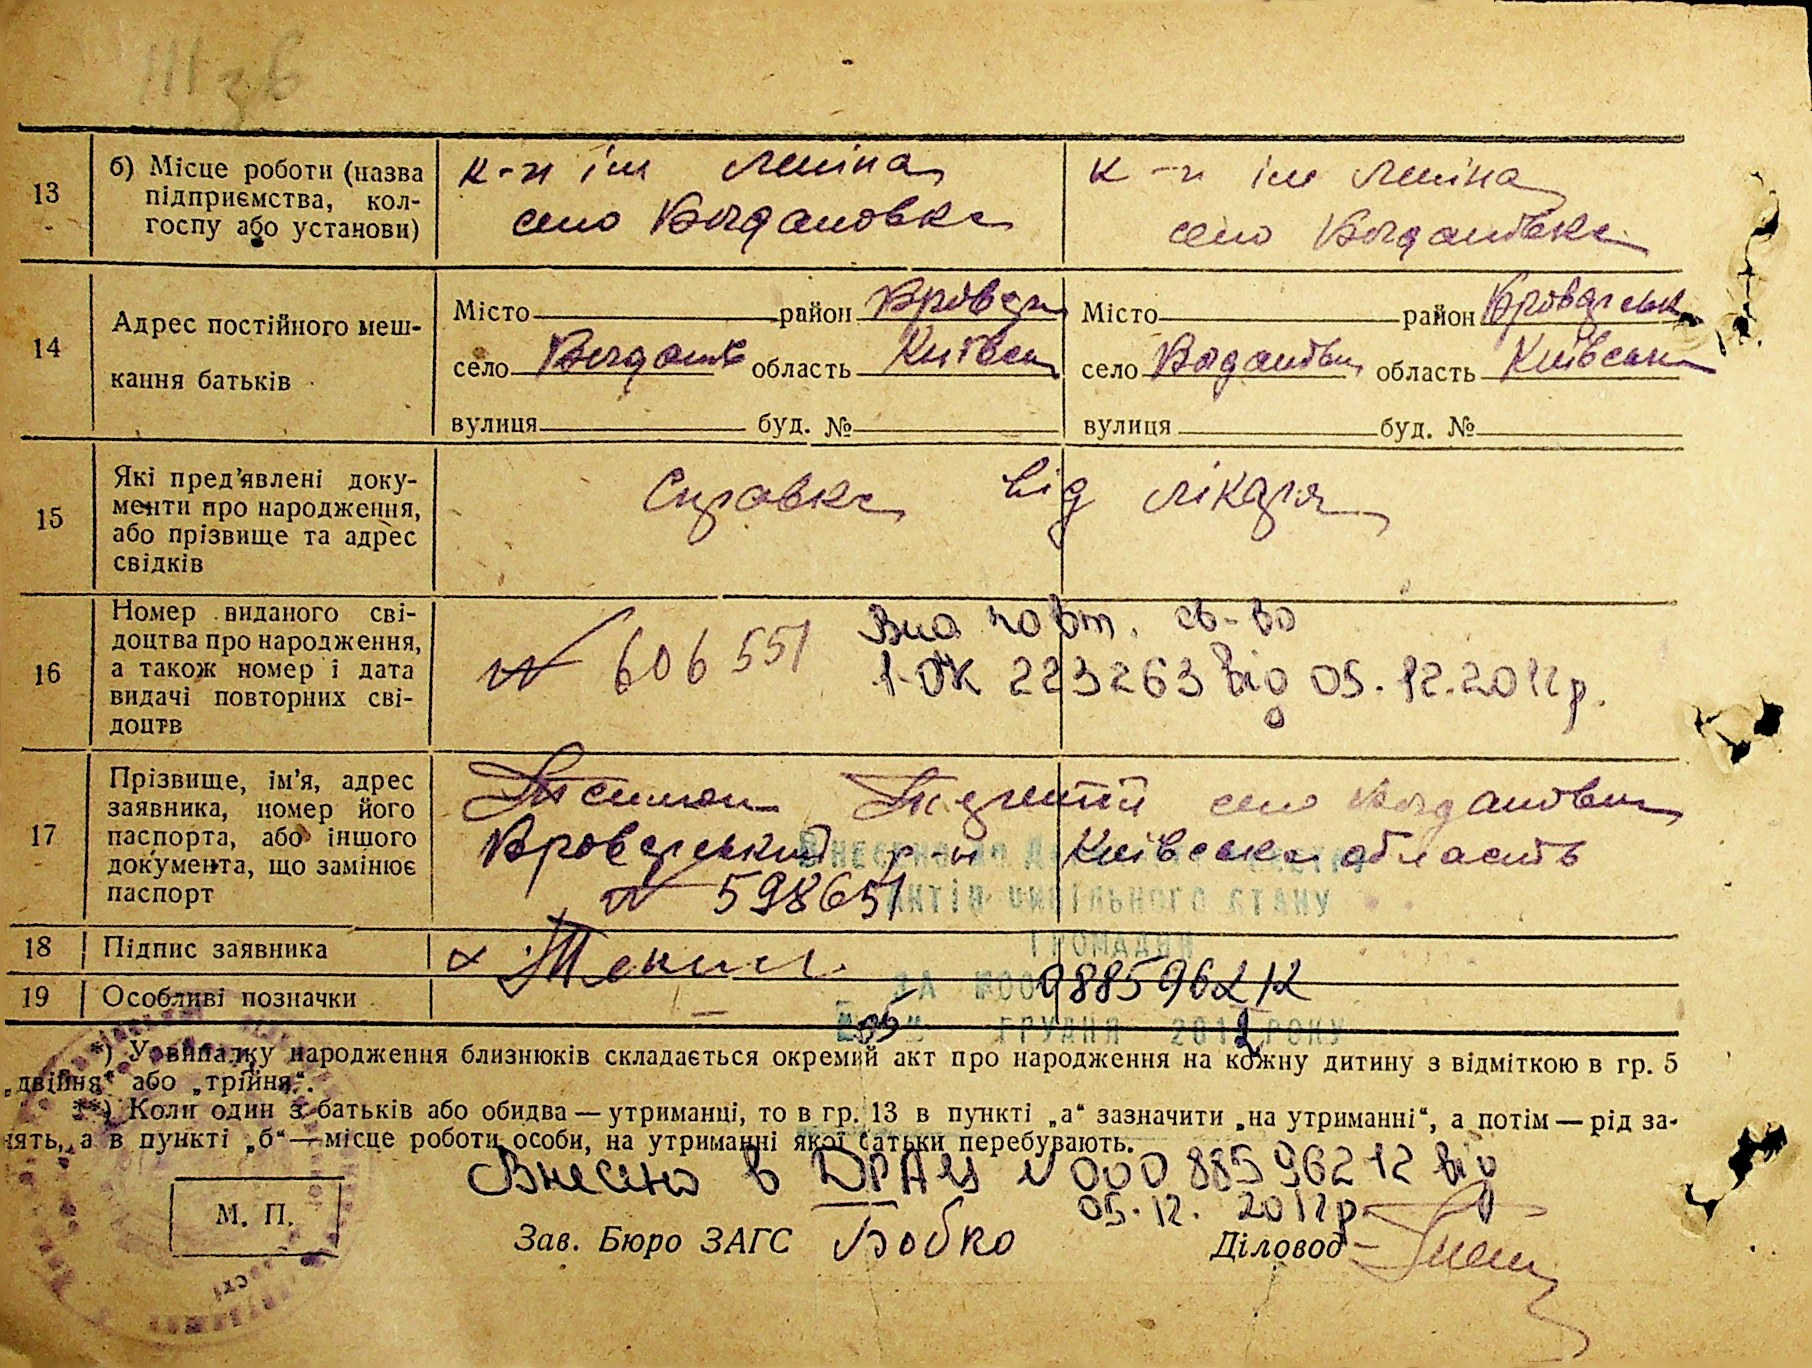 13
б) Місце роботи (назва
підприємства, кол-
госпу або установи)
к-п ім Леніна
село Богдановка
к-п ім Леніна
село Богданівка
14
Адрес постійного меш-
кання батьків
Місто район Бровар
село Богданів область Київськ
вулиця буд. №
Місто район Броварськ
село Богданівк область Київськ
вулиця буд. №
15
Які пред'явлені доку-
менти про народження,
або прізвище та адрес
свідків
Справка від лікаря
16
Номер виданого сві-
доцтва про народження,
а також номер і дата
видачі повторних сві-
доцтв
№ 606551
Вид повт. св-во
1-ОК 223263 від 05.12.2012р.
17
Прізвище, ім'я, адрес
заявника, номер його
паспорта, або іншого
документа, що замінює
паспорт
село Богдановка
Броварський р-н Київська область
№ 598651
АКТІВ ЦИВІЛЬНОГО СТАНУ
ГРОМАДЯН
18
Підпис заявника
19
Особливі позначки
ЗА №00088596212
05 ГРУДНЯ 2012 РОКУ
*) У випадку народження близнюків складається окремий акт про народження на кожну дитину з відміткою в гр. 5
„двійня“ або „трійня“.
**) Коли один з батьків або обидва — утриманці, то в гр. 13 в пункті „а“ зазначити „на утриманні“, а потім — рід за-
нять, а в пункті „б“ — місце роботи особи, на утриманні якої батьки перебувають.
Внесено в ДРАЦ №00088596212 від
05.12.2012р.
М. П.
Зав. Бюро ЗАГС Бобко
Діловод